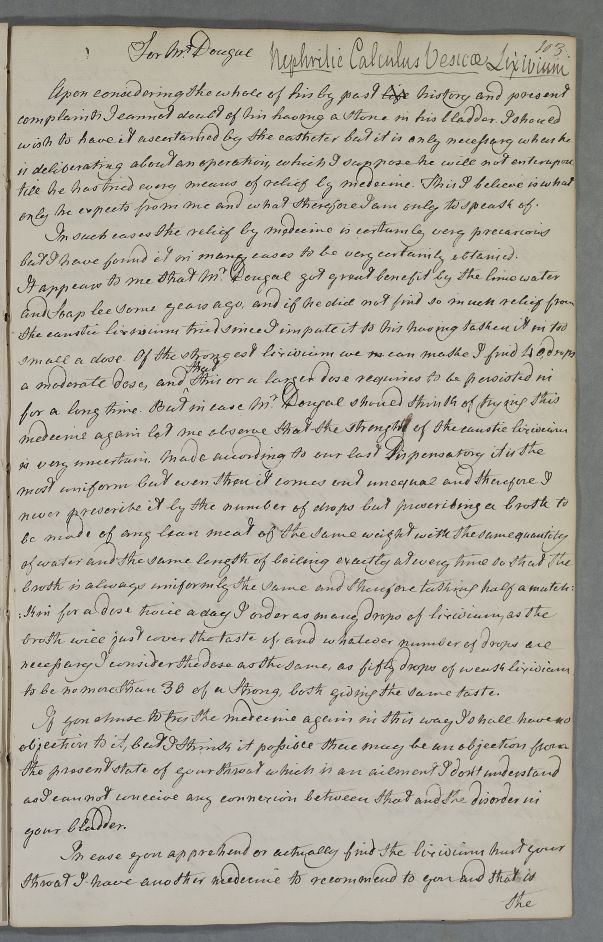 103.
For Mr. Dougal Nephritic Calculus Vesicæ Lixivium
Upon considering the whole of his by past life history and present
complaints I cannot doubt of his having a stone in his bladder. I should
wish to have it ascertained by the catheter but it is only necessary when he
is deliberating about an operation, which I suppose he will not enter upon
till he has tried every means of relief by medecine. This I believe is what
only he expects from me and what therefore I am only to speak of.
In such cases the relief by medecine is certainly very precarious
but I have found it in many cases to be very certainly obtained.
It appears to me that Mr. Dougal got great benefit by the lime water
and soap lee some years ago, and if he did not find so much relief from
the caustic lixivium tried since I impute it to his having taken it in too
small a dose. Of the strongest lixivium we can make I find 40 drops
a moderate dose, and that this or a larger dose requires to be persisted in
for a long time. But in case Mr. Dougal should think of trying this
medecine again let me observe that the strenght of the caustic lixivium
is very uncertain. Made according to our last Dispensatory it is the
most uniform but even then it comes out unequal and therefore I
never prescribe it by the number of drops but prescribing a broth to
be made of any lean meat of the same weight with the same quantity
of water and the same length of boiling exactly at every time so that the
broth is always uniformly the same and therefore taking half a mutch:
:kin for a dose twice a day I order as many drops of lixivium, as the
broth will just cover the taste of and whatever number of drops are
necessary I consider the dose as the same, as fifty drops of weak lixivium
to be no more than 30 of a strong, both giving the same taste.
If you chuse to try the medecine again in this way I shall have no
objection to it, but I think it possible there may be an objection from
the present state of your throat which is an ailment I dont understand
as I cannot conceive any connexion between that and the disorder in
your bladder.
In case you apprehend or actually find the lixivium hurt your
throat I have another medecine to recommend to you and that is
the